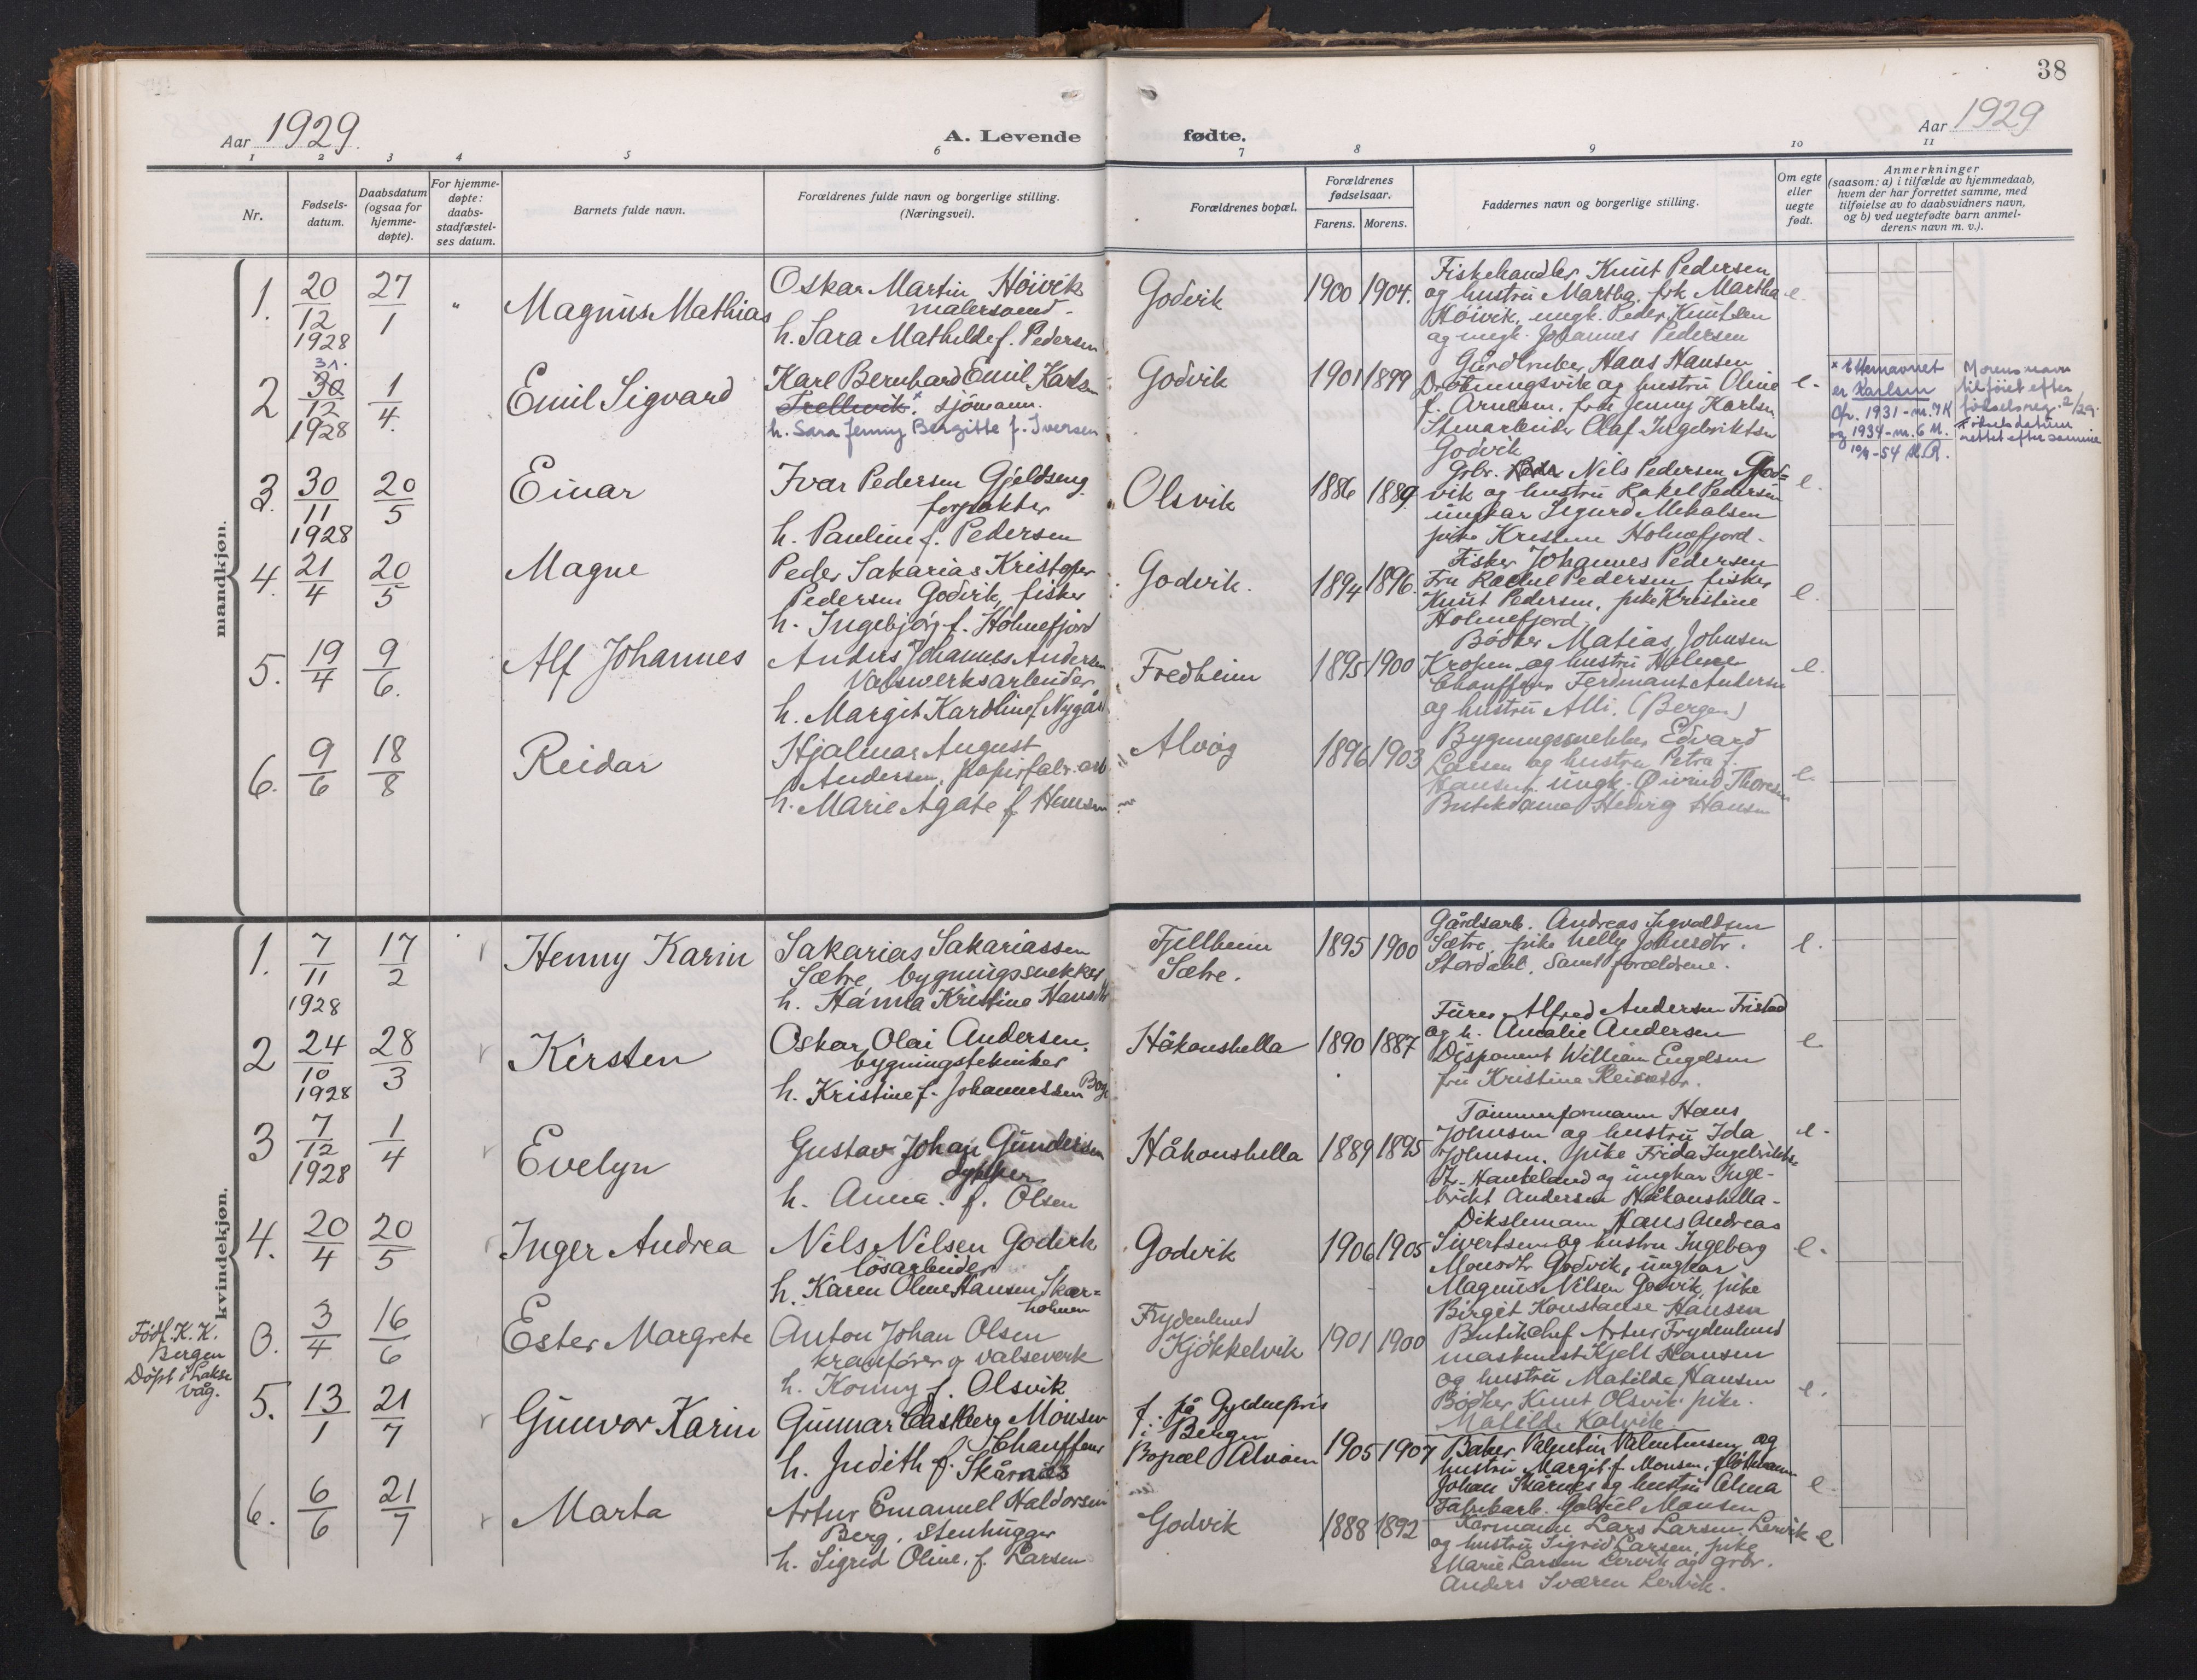 38
Aar 1929.
A. Levende
fødte.
Aar 1929
1 2 3 4 5 6 7 8 9 10 11
Nr.
Fødsels-
datum.
Daabsdatum
(ogsaa for
hjemme-
døpte).
For hjemme-
døpte:
daabs-
stadfæstel-
ses datum.
Barnets fulde navn.
Forældrenes fulde navn og borgerlige stilling.
(Næringsvei).
Forældrenes bopæl.
Forældrenes
fødselsaar.
Farens. Morens.
Faddernes navn og borgerlige stilling.
Om egte
eller
uegte
født.
Anmerkninger
(saasom: a) i tilfælde av hjemmedaab,
hvem der har forrettet samme, med
tilføielse av to daabsvidners navn,
og b) ved uegtefødte barn anmel-
derens navn m. v.).
mandkjøn.
1. 20/12 1928 27/1 " Magnus Mathias
Oskar Martin Høivik
malersvend -
h. Sara Mathilde f. Pedersen
Godvik 1900 1904.
Fiskehandler Knut Pedersen
og hustru Martha, frk Martha
Høivik, ungk. Peder Knutsen
og ungk. Johannes Pedersen
e.
2 31. 30/12 1928 1/4. Emil Sigvard
Karl Bernhard Emil Karlsen
Trellevik. x sjömann.
h. Sara Jenny Bergitte f. Iversen
Godvik 1901 1899
Gårdbruker Hans Hansen
Drotningsvik og hustru Oline
f. Arnesen, frk Jenny Karlsen
Stenarbeider Olaf Ingebriktsen
Godvik
e.
x Etternavnet
er Karlsen
Cfr. 1931 - nr. 7 K
og 1934 - nr. 6 M.
10/4 - 54 H.R.
Morens navn
tilføiet efter
fødselsreg. 2/29.
Fødselsdatum
rettet efter samme
3. 30/11 1928 20/5 Einar
Ivar Pedersen Gjeldseng
forpakter
h. Pauline f. Pedersen
Olsvik 1886 1889.
Gbr. Nils Pedersen God-
vik og hustru Rakel Pedersen
ungkar Sigurd Mikalsen
pike Kristine Holmefjord.
e.
4. 21/4 20/5 Magne
Peder Sakarias Kristofer
Pedersen Godvik, fisker
h. Ingebjörg f. Holmefjord
Godvik. 1894 1896.
Fisker Johannes Pedersen
Fru Rachel Pedersen, fisker
Knut Pedersen, pike Kristine
Holmefjord.
e.
5. 19/4 9/6. Alf Johannes
Anders Johannes Andersen
Valsverksarbeider
h. Margit Karoline f Nygård
Fredheim 1895 1900
Bødker Matias Johnsen
Kropen og hustru Helene
Chauffør Ferdinant Andersen
og hustru Alli. (Bergen)
e.
6. 9/6 18/8 Reidar
Hjalmar August
Andersen, papirfabr. arb
h. Marie Agate f Hansen
Alvøy 1896 1903
Bygningssnekker Edvard
Larsen og hustru Petra f.
Hansen f. ungk. Øivind Thoresen
Butikdame Hedvig Hansen
e.
kvindekjøn.
1. 7/11 1928 17/2 Henny Karin
Sakarias Sakariassen
Sætre, bygningssnekker
h. Hanna Kristine Hansdtr
Fjellheim
Sætre.
1895 1900
Gårdsarb. Andreas Sigvaldsen
Sætre, pike Nelly Johnsdtr.
Stordahl. Samt forældrene.
e.
2 24/10 1928 28/3 Kirsten
Oskar Olai Andersen.
bygningstekniker
h. Kristine f. Johannessen
Håkonshella 1890 1887
Fürer Alfred Andersen Fristad
og h. Amalie Andersen
Disponent William Engelsen
fru Kristine Reisæter.
e
3 7/12 1928 1/4 Evelyn
Gustav Johan Gundersen
dykker
h. Anna f. Olsen
Håkonshella 1889 1895
Tømmerformann Hans
Johnsen og hustru Ida
Johnsen. pike Frida Ingebrikts
dtr. Hanteland og ungkar Inge-
brikt Andersen Håkonshella -
e.
4. 20/4 20/5 Inger Andrea
Nils Nilsen Godvik
løsarbeider
h. Karen Oline Hansen Skar-
holmen
Godvik 1906 1905
Dikslemann Hans Andreas
Sivertsen og hustru Ingeborg
Monsdtr Godvik, ungkar
Magnus Nilsen Godvik, pike
Birgit Konstanse Hansen
e.
Född. K. K.
Bergen
Döpt i Lakse
våg.
0. 3/4 16/6 Ester Margrete
Anton Johan Olsen
kranfører v valseverk
h. Konny f. Olsvik
Frydenlund
Kjøkkelvik
1901 1900
Butikchef Artur Frydenlund
maskinist Kjell Hansen
og hustru Matilde Hansen
Bødker Knut Olsvik pike
Matilde Kalvik.
e.
5. 13/1 21/7 Gunvor Karin
Gunnar Castberg Monsen
Chauffeur
h. Judith f. Skårnes
f. på Gyldenpris
i Bergen
Bopæl Alvøen
1905 1907
Baker Valentin Valentinsen og
hustru Margit f. Monsen,
Johan Skårnes og hustru Alma
Fabrikarb. Gabriel Monsen
e.
6. 6/6 21/7 Marta
Artur Emanuel Haldorsen
Berg, Stenhugger
h. Sigrid Oline, f Larsen
Godvik 1888 1892
Formann Lars Larsen Lervik
og hustru Sigrid Larsen, pike
Marie Larsen Lervik og gbr.
Anders Sværen Lervik.
e